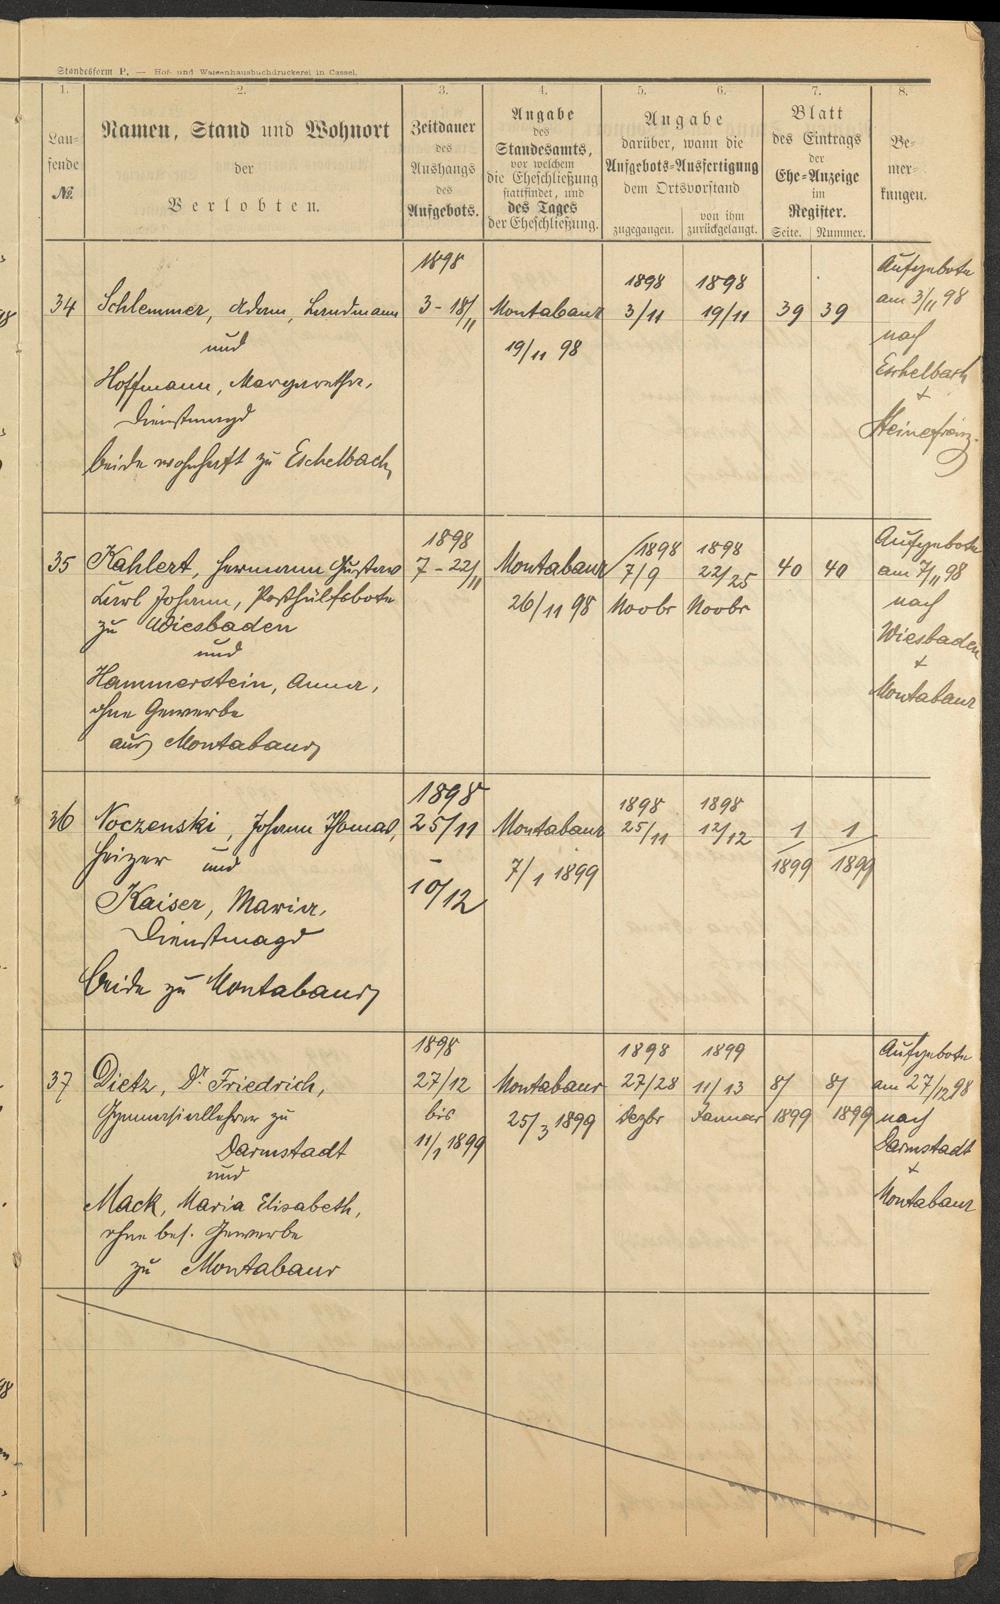 Standesform P. — Hof- und Waisenhausbuchdruckerei in Cassel.
1. 2. 3. 4. 5. 6. 7. 8.
Lau-
fende
№.
Namen, Stand und Wohnort
der
Verlobten.
Zeitdauer
des
Aushangs
des
Aufgebots.
Angabe
des
Standesamts,
vor welchem
die Eheschließung
stattfindet, und
des Tages
der Eheschließung.
Angabe
darüber, wann die
Aufgebots-Ausfertigung
dem Ortsvorstand
zugegangen.
von ihm
zurückgelangt.
Blatt
des Eintrags
der
Ehe-Anzeige
im
Register.
Seite. Nummer.
Be-
mer-
kungen.
34
Schlemmer, Adam, Landmann
und
Hoffmann, Margaretha,
Dienstmagd
beide wohnhaft zu Eschelbach
1898
3 - 18/11
Montabaur
19/11 98
1898
3/11
1898
19/11
39 39
Aufgebote
am 3/11 98
nach
Eschelbach
+
35
Kahlert, Hermann Gustav
Karl Johann, Posthülfsbote
zu Wiesbaden
und
Hammerstein, Anna,
ohne Gewerbe
aus Montabaur
1898
7 - 22/11
Montabaur
26/11 98
1898
7/9
Novbr
1898
22/25
Novbr
40 40
Aufgebote
am 7/11 98
nach
Wiesbaden
+
Montabaur
36
Noczenski, Johann Thomas,
Heizer und
Kaiser, Maria,
Dienstmagd
beide zu Montabaur
1898
25/11
-
10/12
Montabaur
7/1 1899
1898
25/11
1898
12/12
1/1899
1/1899
37
Dietz, Dr Friedrich,
Gymnasiallehrer zu
Darmstadt
und
Mack, Maria Elisabeth,
ohne bes. Gewerbe
zu Montabaur
1898
27/12
bis
11/1 1899
Montabaur
25/3 1899
1898
27/28
Dezbr
1899
11/13
Januar
8/
1899
8/
1899
Aufgebote
am 27/12 98
nach
Darmstadt
+
Montabaur